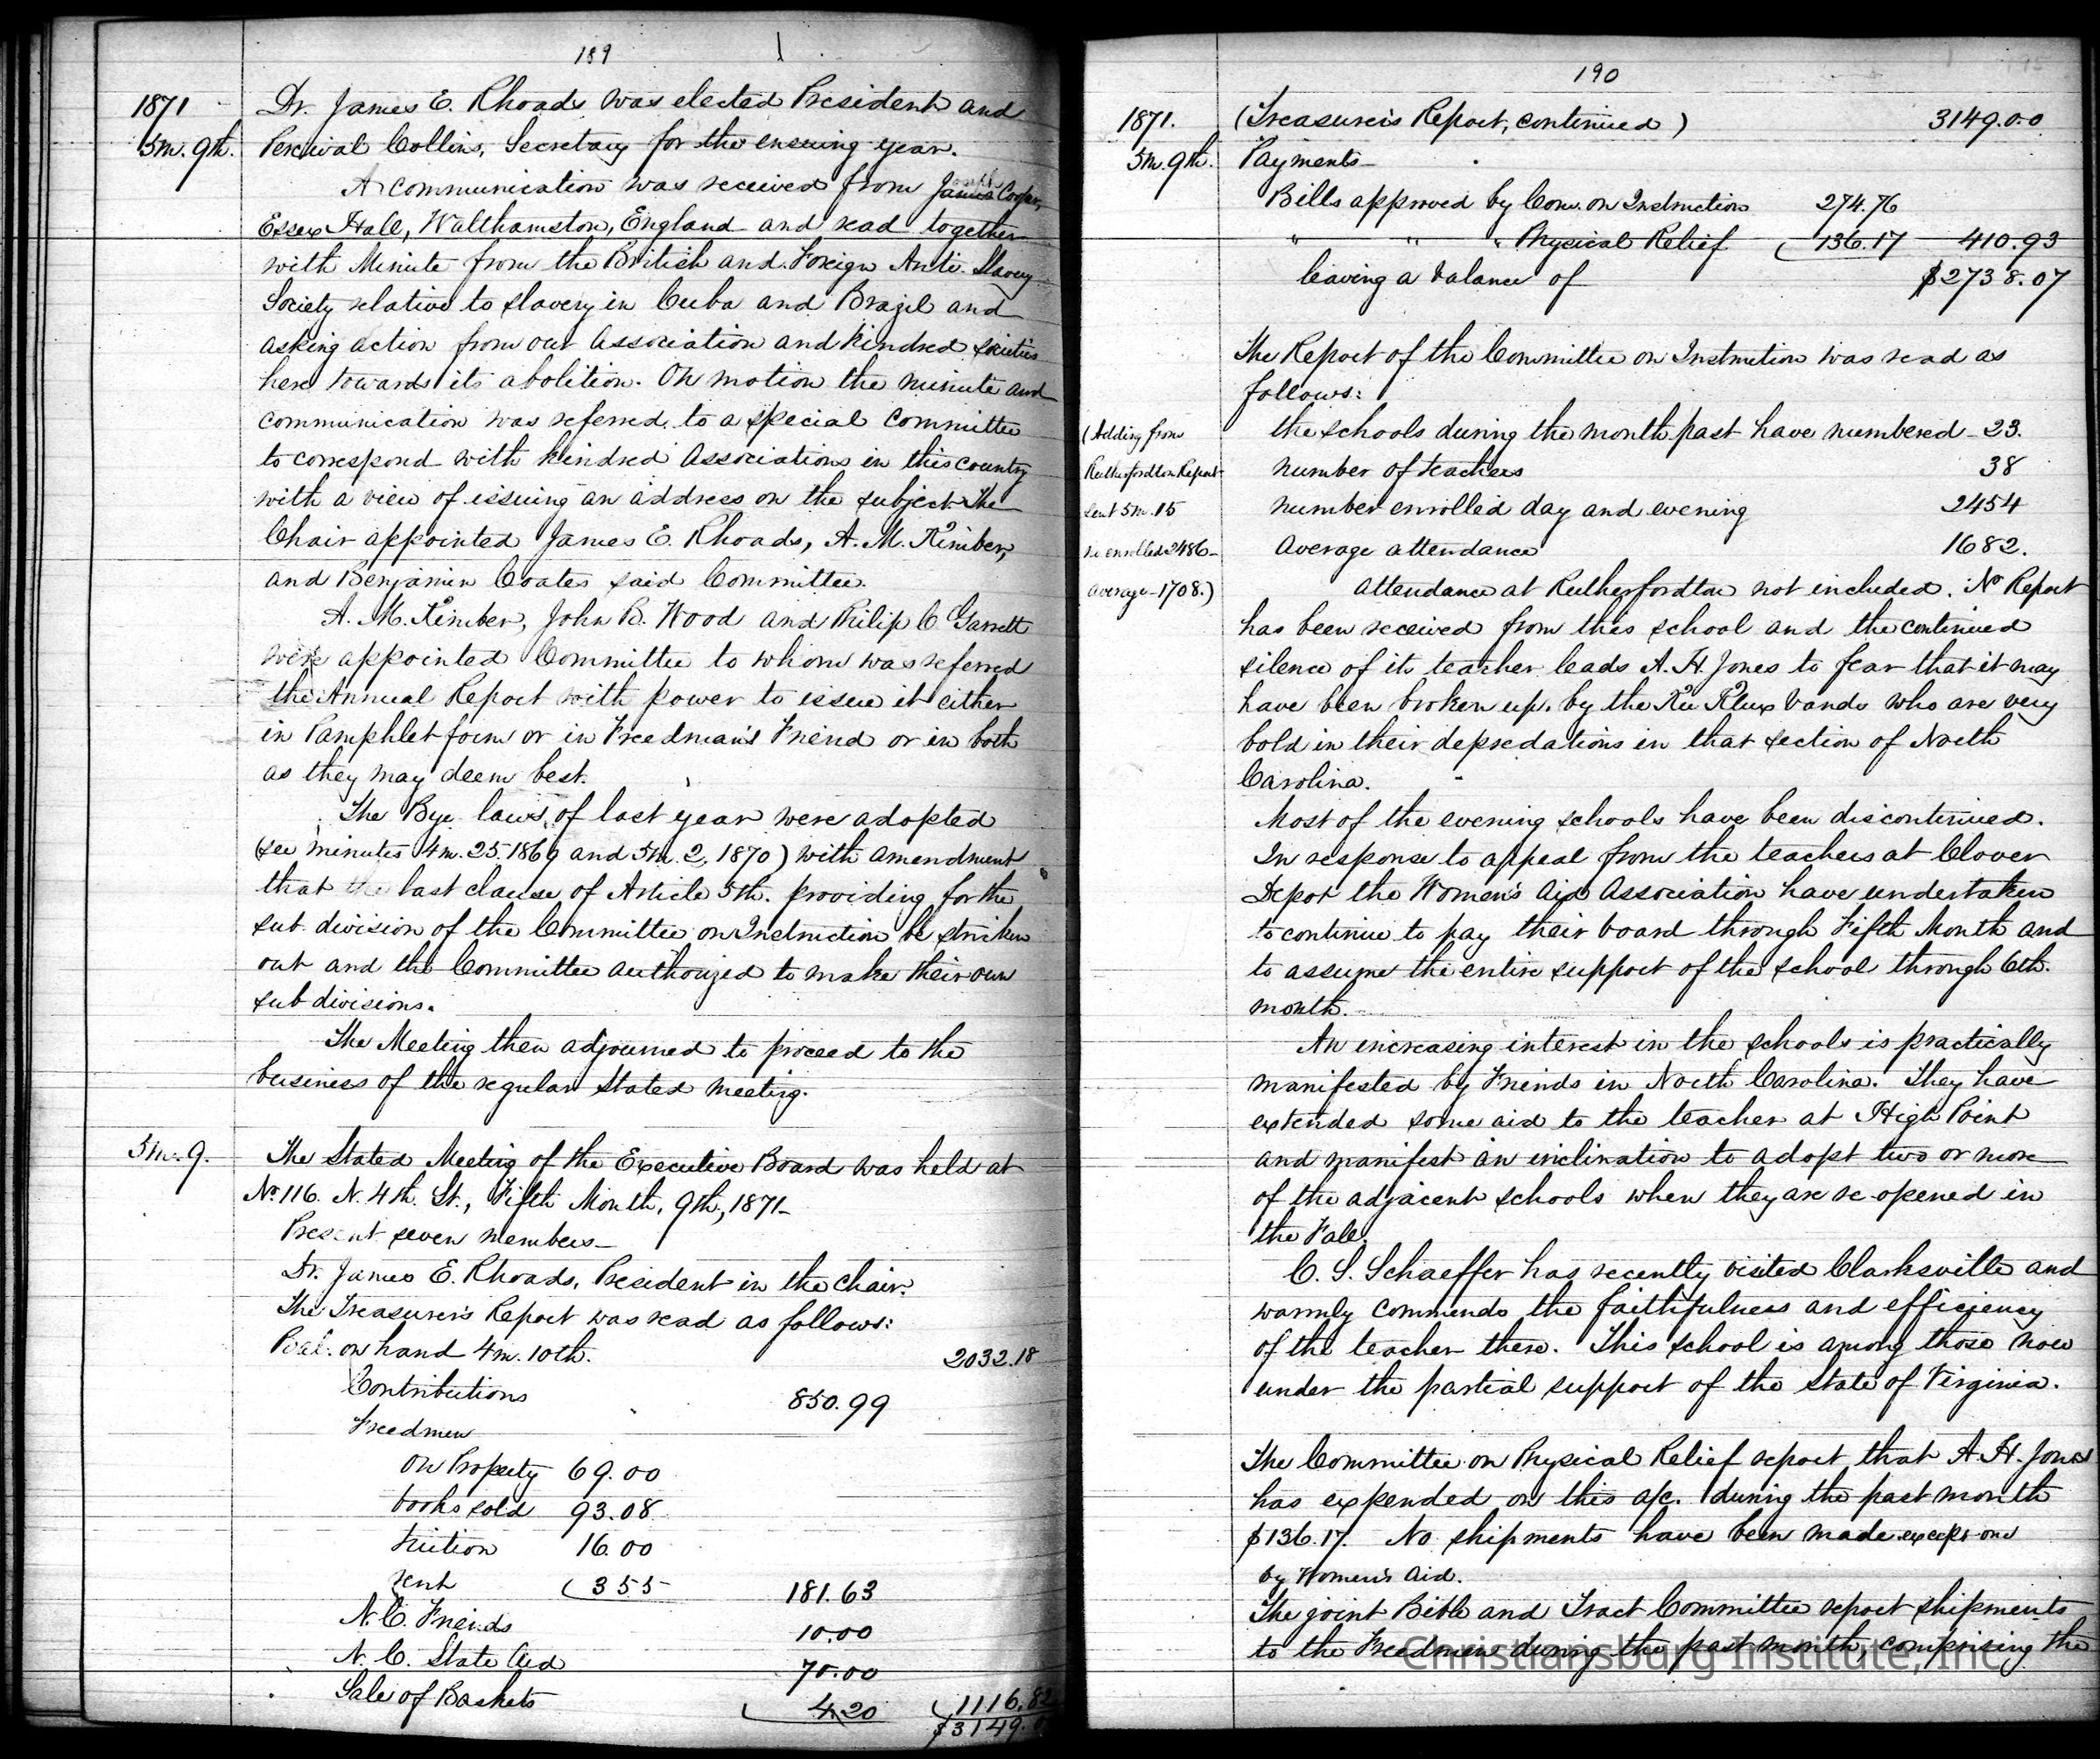 189
1871
Dr. James E. Rhoads was elected President and
5m. 9th.
Percival Collins, Secretary for the ensuing year.
A communication was received from James Joseph Cooper,
Essex Hall, Walthamston, England and read together
with Minute from the British and Foreign Anti-Slavery
Society relative to slavery in Cuba and Brazil and
asking action from our Association and kindred societies
here towards its abolition. On motion the minute and
communication was referred to a special committee
to correspond with kindred Associations in this country
with a view of issuing an address on the subject. The
Chair appointed James E. Rhoads, A. M. Kimber,
and Benjamin Coates said Committee.
A. M. Kimber, John B. Wood and Philip C Garrett
were appointed Committee to whom was referred
the Annual Report with power to issue it either
in Pamphlet form or in Freedman's Friend or in both
as they may deem best.
The Bye laws of last year were adopted
(see minutes 4m. 25. 1869 and 5m. 2, 1870) with amendment
that the last clause of Article 5th. providing for the
sub division of the Committee on Instruction be stricken
out and the Committee authorized to make their own
sub divisions.
The Meeting then adjourned to proceed to the
business of the regular stated meeting.
5m. 9.
The Stated Meeting of the Executive Board was held at
No. 116. N. 4th. St., Fifth Month, 9th, 1871-
Present seven members-
Dr. James E. Rhoads, President in the chair.
The Treasurer's Report was read as follows:
Bal. on hand 4m. 10th. 2032.18
Contributions 850.99
Freedmen
on Property 69.00
books sold 93.08
tuition 16.00
rent 355 181.63
N. C. Friends 10.00
N. C. State Aid 70.00
Sale of Baskets 4.20 1116.82
$3149.0
190
1871.
(Treasurer's Report, continued) 3149.00
5m. 9th.
Payments-
Bills approved by Com. on Instruction 274.76
" " " Physical Relief 136.17 410.93
leaving a balance of $2738.07
The Report of the Committee on Instruction was read as
follows:
(Adding from
Rutherfordton Report
sent 5m. 15
no enrolled 2486-
average-1708.)
the schools during the month past have numbered - 23.
number of teachers 38
number enrolled day and evening 2454
Average attendance 1682.
Attendance at Rutherfordton not included. No Report
has been received from this school and the continued
silence of its teacher leads A. H. Jones to fear that it may
have been broken up, by the Ku Klux bands who are very
bold in their depredations in that section of North
Carolina.
Most of the evening schools have been discontinued.
In response to appeal from the teachers at Clover
Depot the Women's Aid Association have undertaken
to continue to pay their board through Fifth Month and
to assume the entire support of the school through 6th.
month.
An increasing interest in the schools is practically
manifested by Friends in North Carolina. They have
extended some aid to the teacher at High Point
and manifest an inclination to adopt two or more
of the adjacent schools when they are re-opened in
the Fall.
C. S. Schaeffer has recently visited Clarksville and
warmly commends the faithfulness and efficiency
of the teacher there. This school is among those now
under the partial support of the State of Virginia.
The Committee on Physical Relief report that A. H. Jones
has expended on this a/c. during the past month
$136.17. No shipments have been made except one
by Women's Aid.
The joint Bible and Tract Committee report shipments
to the Freedmen during the past month, comprising the
Christiansburg Institute, Inc.